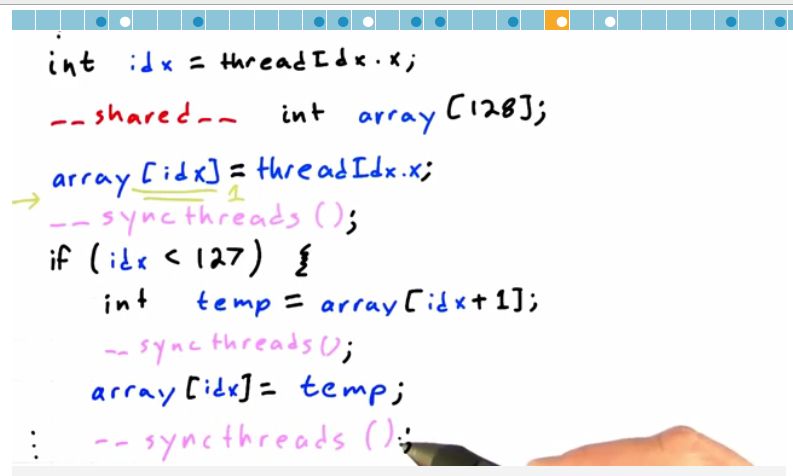 int idx = threadIdx.x;
__shared__ int array[128];
array[idx] = threadIdx.x;
1
__syncthreads();
if (idx < 127) {
int temp = array[idx+1];
__syncthreads();
array[idx] = temp;
__syncthreads();